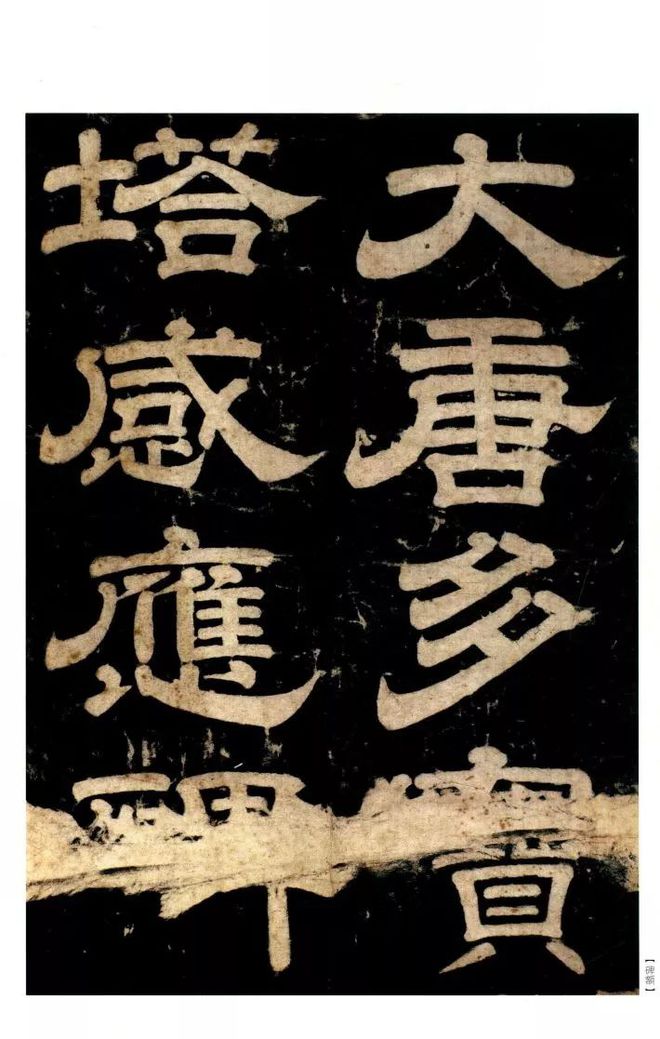 大唐多寶
塔感應碑
【碑額】